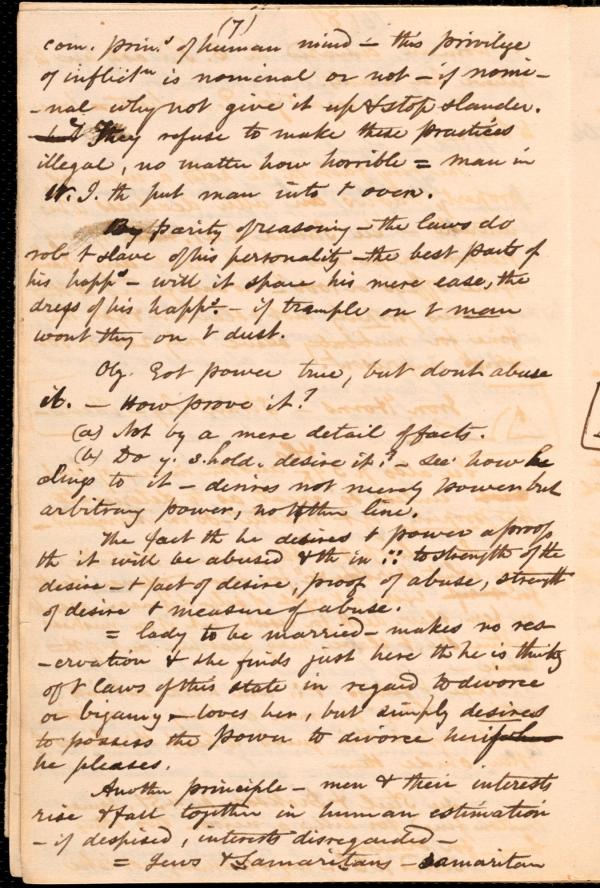 (7)
com. prin.s of human mind – this privilege
of inflictn is nominal or not – if nomi-
-nal why not give it up & stop slander.
They refuse to make these practices
illegal, no matter how horrible = man in
W. I. th put man into t oven.
By parity of reasoning – the laws do
rob t slave of his personality – the best parts of
his happs – will it spare his mere ease, the
dregs of his happs. – if trample on t man
wont they on t dust.
Obj. Got power true, but dont abuse
it. – How prove it?
(a) Not by a mere detail of facts.
(b) Do y. s.hold. desire it? – see how he
clings to it – desires not merely power but
arbitrary power, no other line.
The fact th he desires t power a proof
th it will be abused & th in :: to strength of the
desire – t fact of desire, proof of abuse, strength
of desire t measure of abuse.
= lady to be married – makes no res-
-ervation & she finds just here th he is thinkg
of t laws of this state in regard to divorce
or bigamy – loves her, but simply desires
to possess the power to divorce her if
he pleases.
Another principle – men & their interests
rise & fall together in human estimation
– if despised, interests disregarded –
= Jews & Samaritans – Samaritan